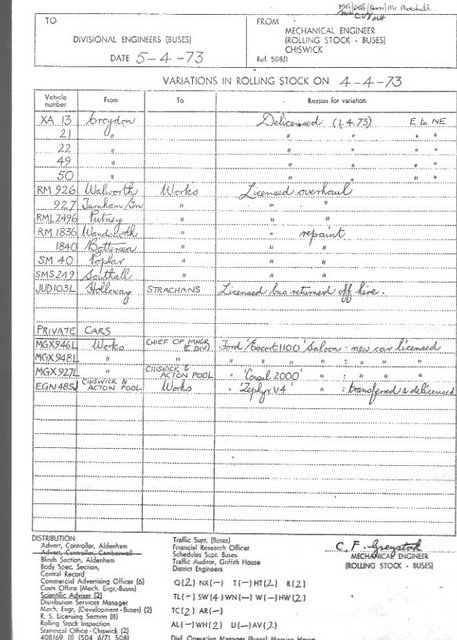 TO
DIVISIONAL ENGINEERS (BUSES)
DATE 5-4-73
FROM
MECHANICAL ENGINEER
(ROLLING STOCK - BUSES)
CHISWICK
Ref. 508/1
VARIATIONS IN ROLLING STOCK ON 4-4-73
Vehicle number From To Reason for variation
XA 13 Croydon Delicensed (1.4.73) E to NE
21 " " " " "
22 " " " " "
49 " " " " "
50 " " " " "
RM 926 Walworth Works Licensed overhaul
927 Turnham Gn " " "
RML 2496 Putney " " "
RM 1836 Wandsworth " " repaint
1840 Battersea " " "
SM 40 Poplar " " "
SMS 249 Southall " " "
JUD103L Holloway STRACHANS Licensed bus returned off hire.
PRIVATE CARS
MGX946L Works CHIEF OP MNGR (E DIV) Ford 'Escort 1100' Saloon - new car licensed
MGX948L " " " " " : " " "
MGX927L " CHISWICK & ACTON POOL " 'Consul 2000' " : " " "
EGN485J CHISWICK & ACTON POOL Works " 'Zephyr V4' " : transferred & delicensed
DISTRIBUTION
Advert, Controller, Aldenham
Advert, Controller, Camberwell
Blinds Section, Aldenham
Body Spec. Section,
Central Record
Commercial Advertising Officer (6)
Costs Office (Mech. Engr.-Buses)
Scientific Adviser (2)
Distribution Services Manager
Mech. Engr, (Development - Buses) (2)
R. S. Licensing Section (8)
Rolling Stock Inspection
Statistical Office - Chiswick (2)
Traffic Supt. (Buses)
Financial Research Officer
Schedules Supt. Buses
Traffic Auditor, Griffith House
District Engineers
Q(2) NX(-) T(-) HT(2) R(2)
TL(-) SW(4) WN(-) W(-) HW(2)
TC(2) AR(-)
AL(-) WH(2) U(-) AV(2)
C. F. Greystock
MECHANICAL ENGINEER
(ROLLING STOCK - BUSES)